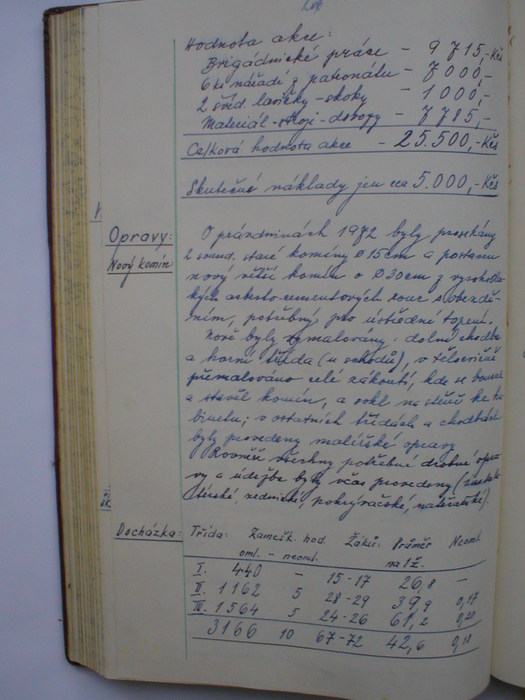 Hodnota akce:
Brigádnické práce - 9 715,- Kčs
6 ks nářadí z patronátu - 7 000,-
2 šved. lavičky - skoky - 1 000,-
Materiál - stroji - dotogy - 7 785,-
Celková hodnota akce - 25.500,- Kčs
Skutečné náklady jen cca 5.000,- Kčs
Opravy:
Nový komín:
O prázdninách 1972 byly
2 staré komíny ø 15cm a postaven
nový větší komín o ø 30cm z
asbesto-cementových rour s obezdě-
ním, potřebný pro ústřední topení.
Nově byly vymalovány: dolní chodba
a horní třída (u schodů), v tělocvičně
přemalováno celé zákoutí, kde se boural
a stavěl komín, a sokl na stěně ke ka-
binetu; v ostatních třídách a chodbách
byly provedeny malířské opravy.
Rovněž všechny potřebné drobné opra-
vy a údržby byly včas provedeny
zednické, pokrývačské, natěračské).
Docházka: Třída: Zamešk. hod. Žáků: Průměr Neoml.
oml. - neoml. na 1 ž.
I. 440 - 15-17 26,8 -
II. 1162 5 28-29 39,9 0,17
III. 1564 5 24-26 61,2 0,20
3166 10 67-72 42,6 0,13